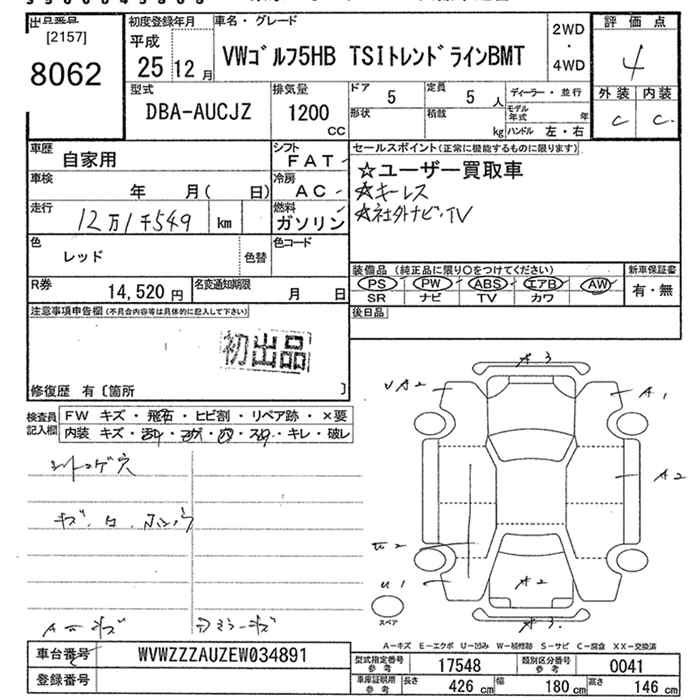 [2157]
8062
初度登録年月
平成
25 12月
車名・グレード
VWゴルフ5HB TSIトレンドラインBMT
2WD
・
4WD
評価点
4
外装 内装
C C
型式
DBA-AUCJZ
排気量
1200
CC
ドア 5
定員 5 人
形状
積載 kg
ディーラー・並行
モデル年式 年
ハンドル 左・右
車歴 自家用
シフト FAT
車検 年 月( 日)
冷房 AC
走行 12万1千549 km
燃料 ガソリン
色 レッド
色替
色コード
R券 14,520 円
名変通知期限 月 日
セールスポイント(正常に機能するものに限ります)
☆ユーザー買取車
☆キーレス
☆社外ナビ・TV
装備品 (純正品に限り○をつけてください)
PS PW ABS エアB AW
SR ナビ TV カワ
新車保証書
有・無
後日品
注意事項申告欄(不具合内容等は具体的に記入して下さい)
初出品
修復歴 有〔箇所 〕
検査員記入欄
FW キズ・飛石・ヒビ割・リペア跡・×要
内装 キズ・汚れ・コゲ・穴・スレ・キレ・破レ
シートコゲ穴
A3
A2
A1
A2
U2
U1
A2
A3
スペア
A-キズ E-エクボ U-凹み W-補修跡 S-サビ C-腐食 XX-交換済
車台番号 WVWZZZAUZEW034891
登録番号
型式指定番号 参考 17548
類別区分番号 参考 0041
車庫証明用 参考 長さ 426 cm 幅 180 cm 高さ 146 cm